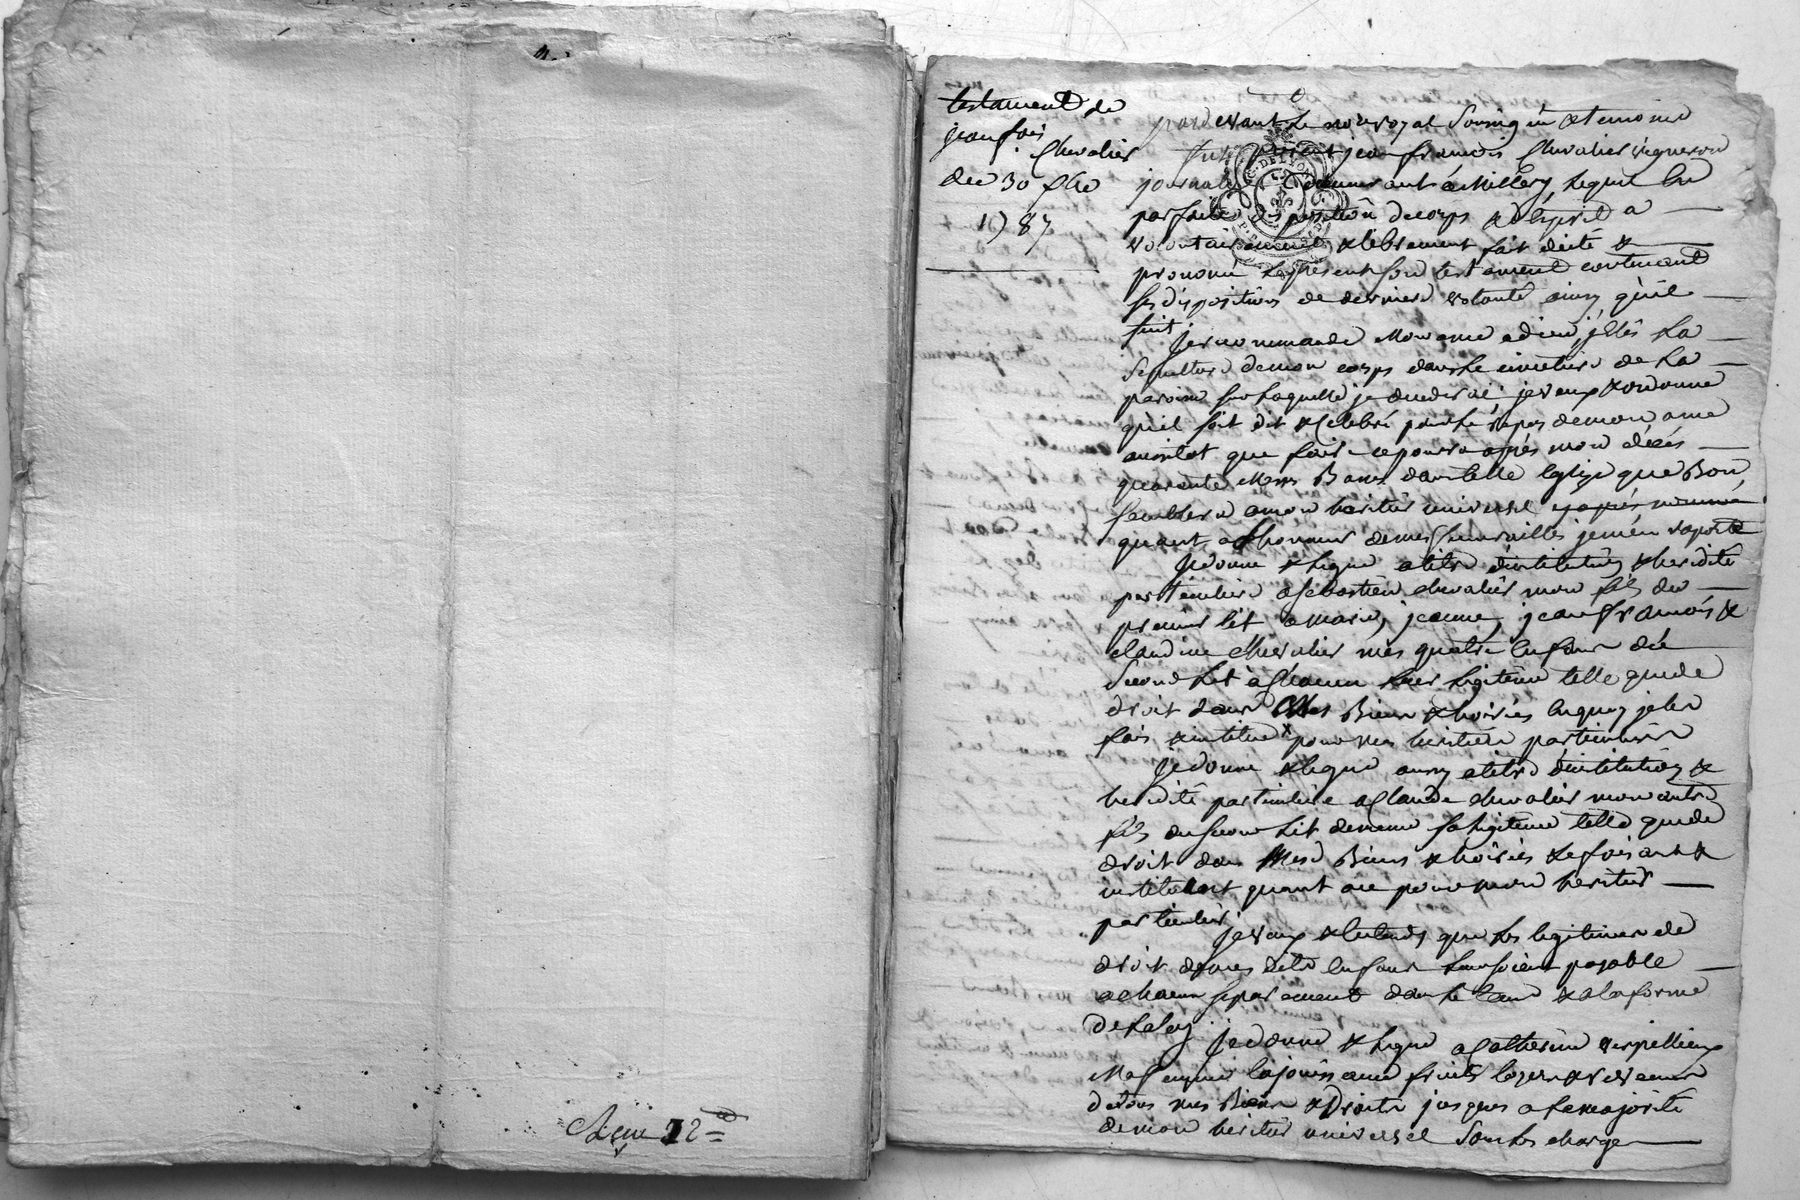 Reçu 12 d
testament de
jean fois
Chevalier
du 30 xbre
1787
pardevant le notre royal soussigné & temoins
fut present jean francois Chevalier vigneron
journalier demeurant a Millery, lequel en
parfaite disposition de corps & d'esprit a
volontairement & librement fait dicté &
prononcé le present son testament contenant
ses dispositions de derniere volonté ainsy qu'il
suit
Je recommande Mon ame a dieu, j'Elis la
sepulture de mon corps dans le cimetiere de la
paroisse sur laquelle je decederai, je veux & ordonne
qu'il soit dit & Celebré pour le repos de mon ame
aussitot que faire ce pourra après mon décès
quarante Messes Basses dans telle Eglise que Bon
semblera a mon heritier universel cy après nommé
quant a l'honneur de mes funerailles je m'en raporte
Je donne & legue a titre d'institution & heredité
particuliere a Sebastien chevalier mon fils du
premier lit a marie, jeanne, jean francois &
claudine Chevalier mes quatre Enfans du
Second Lit à Chacun leur legitime telle que de
droit dans Mes Biens & hoiries En quoy je les
fais & institue x pour mes heritiers particuliers
Je donne & legue aussy a titre d'institution &
heredité particuliere a Claude chevalier mon autre
fils du second Lit de meme sa legitime telle que de
droit dans Mes Biens & hoiries le faisant &
instituant quant a ce pour mon heritier
particulier
je veux & Entends que les legitimes de
droit de mes dits Enfans leur soient payable
a chacun separement dans le tems & a la forme
de la loy
Je donne & legue a Catherine Verpillieux
Ma femme la jouissance fruits Loyers & revenus
de tous mes Biens & Droits jusques a la majorité
de mon heritier universel sous les charges